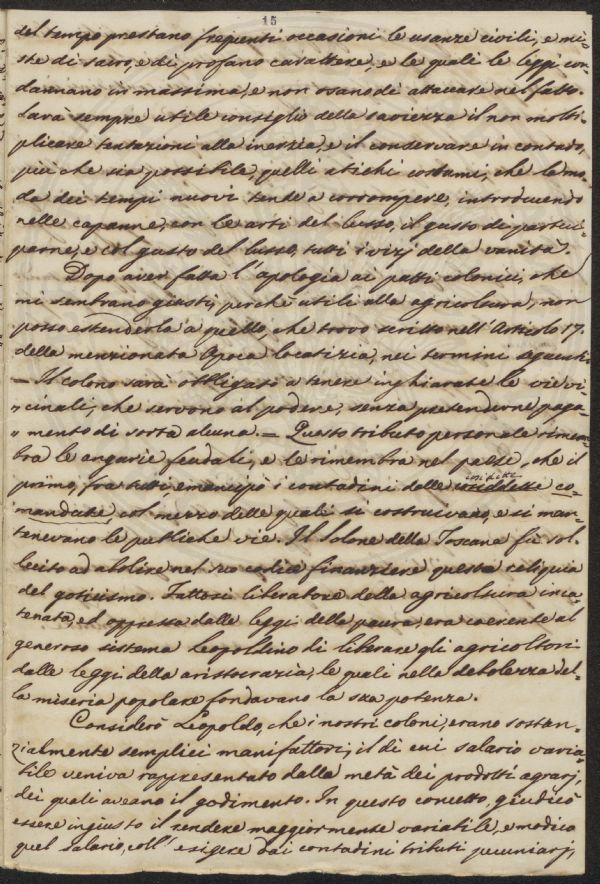 15
del tempo prestano frequenti occasioni le usanze civili, e mi-
ste di sacro, e di profano carattere, e le quali le leggi con-
dannano in massima, e non osano di attaccare nel fatto.
Sarà sempre utile consiglio della saviezza il non molti-
plicare tentazioni alla inerzia, e il conservare in contado,
più che sia possibile, quelli atichi costumi, che la mo-
da dei tempi nuovi tende a corrompere, introducendo
nelle capanne, con le arti del lusso, il gusto di partici-
parne, e col gusto del lusso, tutti i vizj della vanità.
Dopo aver fatta l'apologia ai patti colonici, che
mi sembrano giusti, perchè utili alla agricoltura, non
posso estenderla a quello, che trovo scritto nell'Articolo 17.
della menzionata Apoca locatizia, nei termini seguenti
= Il colono sarà obbligato a tenere inghiarate le vie vi-
" cinali, che servono al podere, senza pretenderne paga-
" mento di sorta alcuna. = Questo tributo personale rimem-
bra le angarie feudali, e le rimembra nel paese, che il
primo, fra tutti, emancipò i contadini dalle cosiddette co-
mandate, col mezzo delle quali si costruivano, e si man-
tenevano le pubbliche vie. Il Solone della Toscana fu sol-
lecito ad abolire nel suo codice finanziere questa reliquia
del goticismo. Fattosi liberatore della agricoltura inca-
tenata, ed oppressa dalle leggi della paura, era coerente al
generoso sistema Leopoldino di liberare gli agricoltori
dalle leggi della aristocrazia, le quali nella debolezza del-
la miseria popolare fondavano la sua potenza.
Considerò Leopoldo, che i nostri coloni, erano sostan-
zialmente semplici manifattori, il di cui salario varia-
bile veniva rappresentato dalla metà dei prodotti agrarj,
dei quali aveano il godimento. In questo concetto, giudicò
essere ingiusto il rendere maggiormente variabile, e modico
quel salario, coll'esigere dai contadini tributi pecuniarj,